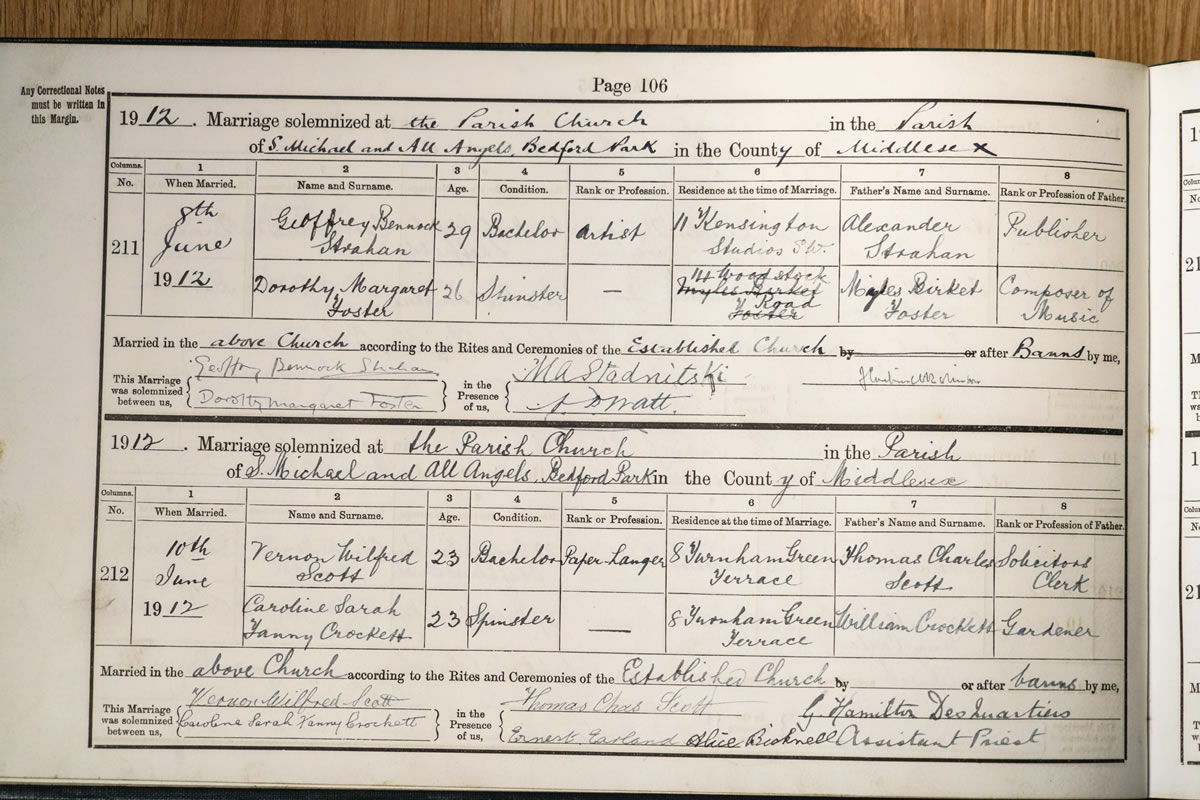 Page 106
Any Correctional Notes
must be written in
this Margin.
1912. Marriage solemnized at the Parish Church in the Parish
of S. Michael and All Angels, Bedford Park in the County of Middlesex
Columns. 1 2 3 4 5 6 7 8
No. When Married. Name and Surname. Age. Condition. Rank or Profession. Residence at the time of Marriage. Father's Name and Surname. Rank or Profession of Father.
211
8th
June
1912
Geoffrey Bennock
Strahan
29 Bachelor Artist
11 Kensington
Studios S.W.
Alexander
Strahan
Publisher
Dorothy Margaret
Foster
26 Spinster —
14 Woodstock
Myles Birket
Road
Foster
Myles Birket
Foster
Composer of
Music
Married in the above Church according to the Rites and Ceremonies of the Established Church by or after Banns by me,
This Marriage
was solemnized
between us,
Geoffrey Bennock Strahan
Dorothy Margaret Foster
in the
Presence
of us,
M A Stadnitski
Watt.
1912. Marriage solemnized at the Parish Church in the Parish
of S. Michael and All Angels, Bedford Park in the County of Middlesex
Columns. 1 2 3 4 5 6 7 8
No. When Married. Name and Surname. Age. Condition. Rank or Profession. Residence at the time of Marriage. Father's Name and Surname. Rank or Profession of Father.
212
10th
June
1912
Vernon Wilfred
Scott
23 Bachelor Paper Hanger
8 Turnham Green
Terrace
Thomas Charles
Scott
Solicitors
Clerk
Caroline Sarah
Fanny Crockett
23 Spinster —
8 Turnham Green
Terrace
William Crockett
Gardener
Married in the above Church according to the Rites and Ceremonies of the Established Church by or after banns by me,
This Marriage
was solemnized
between us,
Vernon Wilfred Scott
Caroline Sarah Fanny Crockett
in the
Presence
of us,
Thomas Chas Scott
Ernest Earland Alice Bicknell
G. Hamilton
Assistant Priest